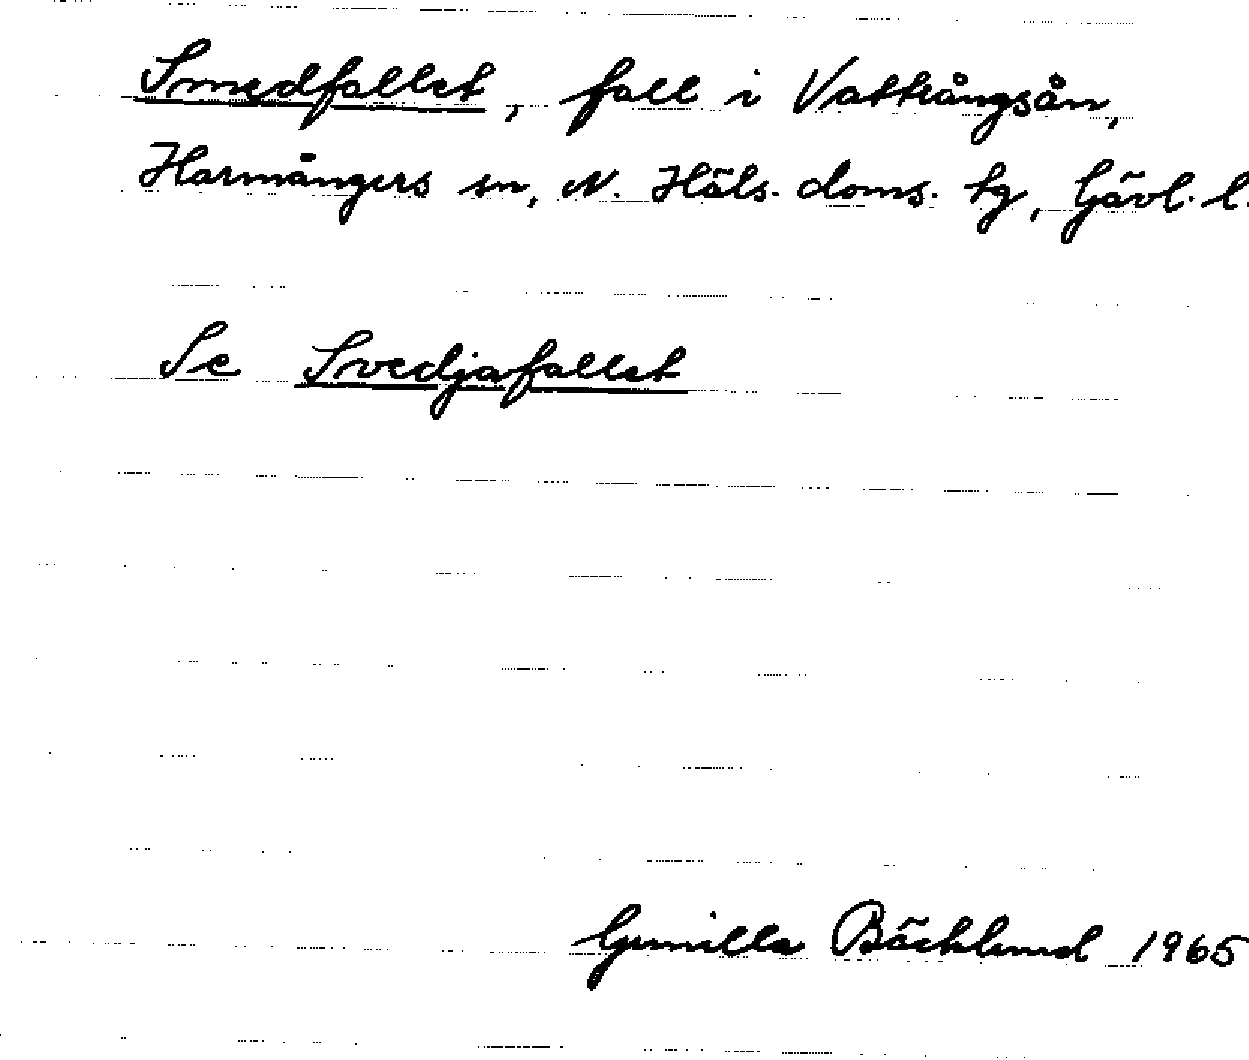 Smedfallet, fall i Vattrångsån,
Harmångers sn, N. Häls. doms. tg, Gävl. l.
Se Svedjafallet
Gunilla Bäcklund 1965